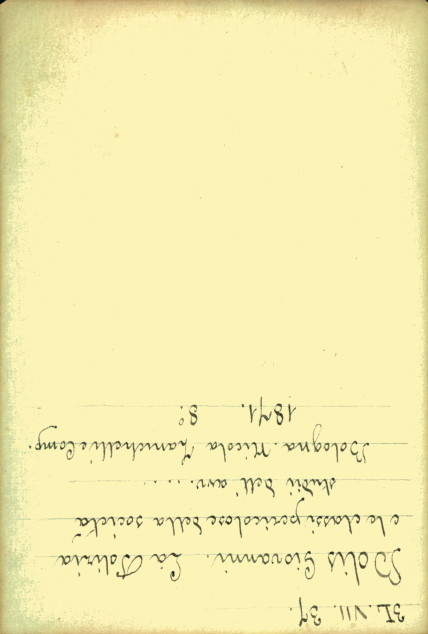 31. VII. 37.
Bolis Giovanni. La Polizia
e le classi pericolose della società
studii dell' avv. ....
Bologna. Nicola Zanichelli e Comp.
1871. 8º.